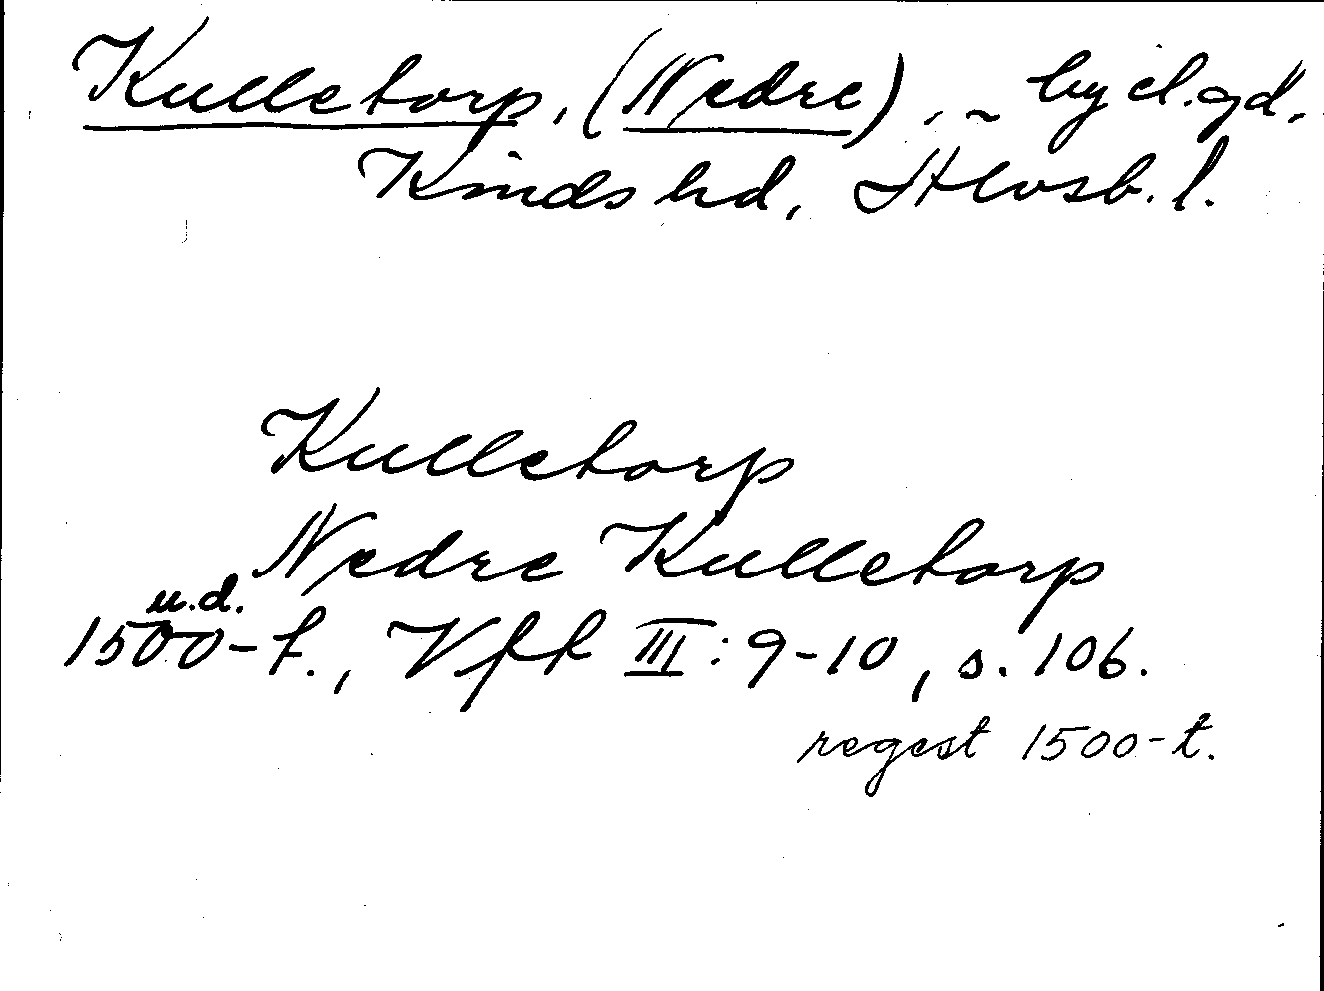 Kulletorp, (Nedre), ~ by el. gd,
Kinds hd, Älvsb. l.
Kulletorp
Nedre Kulletorp
u.d.
1500-t., Vfk III: 9-10, s. 106.
regest 1500-t.